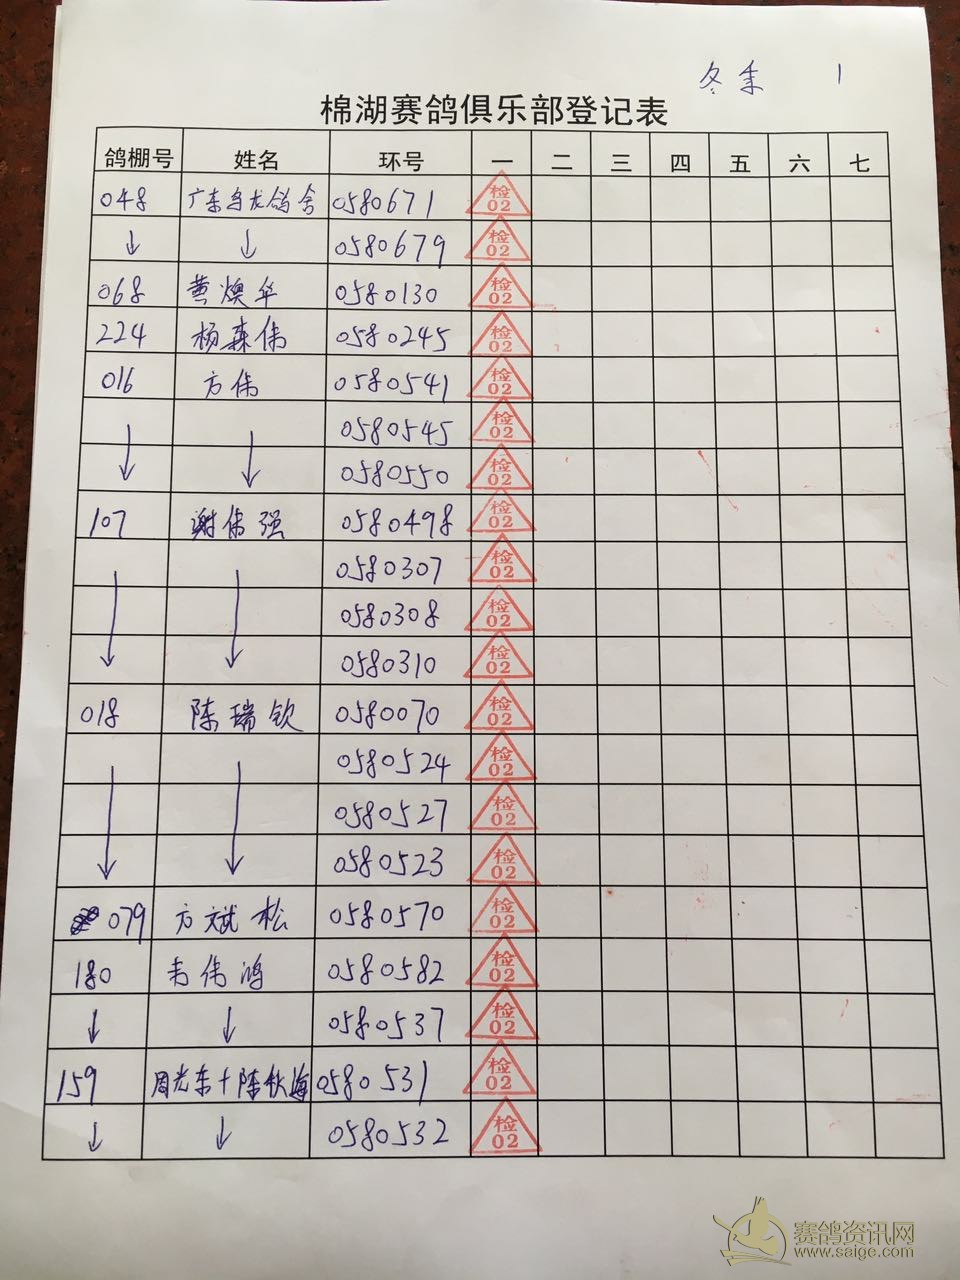 冬季 1
棉湖赛鸽俱乐部登记表
鸽棚号 姓名 环号 一 二 三 四 五 六 七
048 广东乌龙鸽舍 0580671 检02
↓ ↓ 0580679 检02
068 黄焕 0580130 检02
224 杨森伟 0580245 检02
016 方伟 0580541 检02
0580545 检02
↓ ↓ 0580550 检02
107 谢伟强 0580498 检02
0580307 检02
0580308 检02
↓ ↓ 0580310 检02
018 陈瑞钦 0580070 检02
0580524 检02
0580527 检02
↓ ↓ 0580523 检02
079 方斌松 0580570 检02
180 伟鸿 0580582 检02
↓ ↓ 0580537 检02
159 周光东+陈钦海 0580531 检02
↓ ↓ 0580532 检02
赛鸽资讯网
www.saige.com